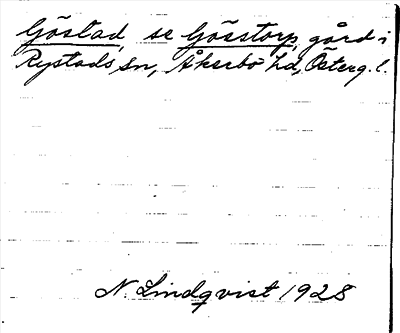 Göstad, se Gösstorp, gård i
Rystads sn, Åkerbo hd, Österg. l.
N. Lindqvist 1928